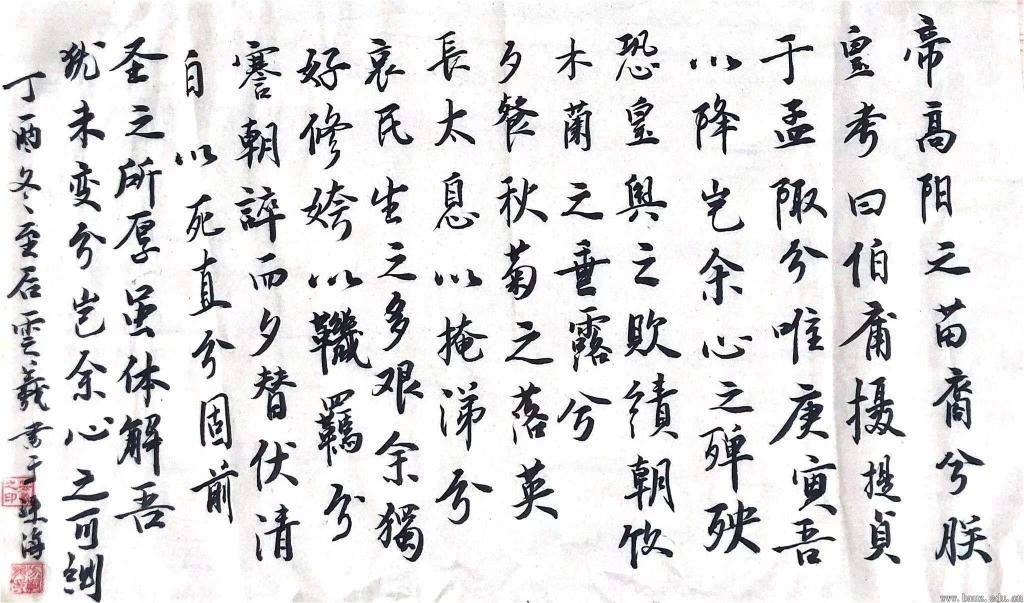 帝高阳之苗裔兮朕
皇考曰伯庸摄提贞
于孟陬兮唯庚寅吾
以降岂余心之殚殃
恐皇舆之败績朝饮
木蘭之垂露兮
夕餐秋菊之落英
長太息以掩涕兮
哀民生之多艰余獨
好修姱以鞿羈兮
謇朝誶而夕替伏清
自以死直兮固前
圣之所厚虽体解吾
犹未变兮岂余心之可
丁酉冬至后雲羲書于珠海
www.bnuz.edu.cn